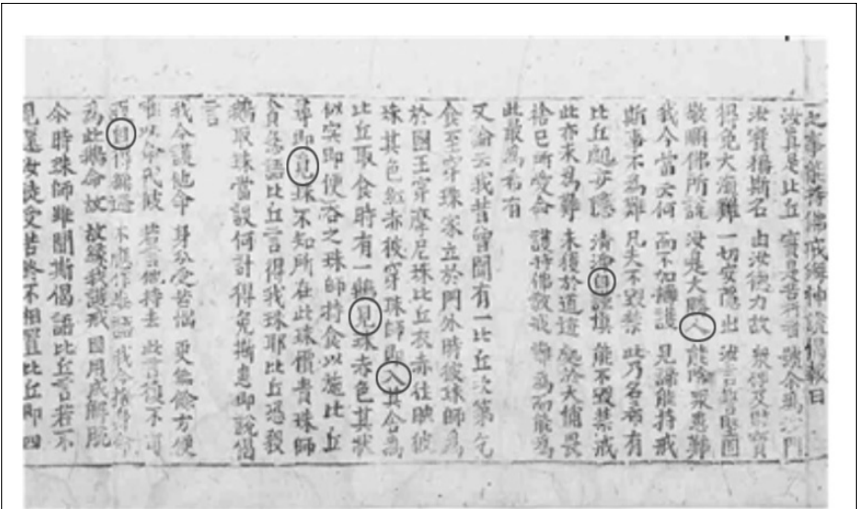 之事堅持佛戒經神護偈報曰
汝真是比丘 實是苦行者 號尒為沙門
汝實稱斯名 由汝德力故 眾伴及財寶
得免大濟難 一切安隱出 汝言誓堅固
敬順佛所說 汝是大勝人 能除眾患難
我今當云何 而不加擁護 見諦能持戒
斯事不為難 凡夫不毀禁 此乃名希有
比丘處安隱 清淨自謹慎 能不毀禁戒
此亦未為難 未獲於道迹 處於大怖畏
捨己所愛命 護持佛教戒 難為而能為
此最為希有
又論云我昔曾聞有一比丘次第乞
食至穿珠家立於門外時彼珠師為
於國王穿摩尼珠比丘衣赤往映彼
珠其色紅赤彼穿珠師即入其舍為
比丘取食時有一鵝見珠赤色其狀
似宍即便吞之珠師持食以施比丘
尋即覓珠不知所在此珠價貴珠師
貧急語比丘言得我珠耶比丘恐殺
鵝取珠當設何計得免斯患即說偈
言
我今護他命 身分受苦惱 更無餘方便
唯以命代彼 若言他持去 此言復不可
自得無過 不應作妄語 我今捨身命
為此鵝命故 故緣我護戒 因用成解脫
尒時珠師雖聞斯偈語比丘言若不
見還汝徒受苦終不相置比丘即四